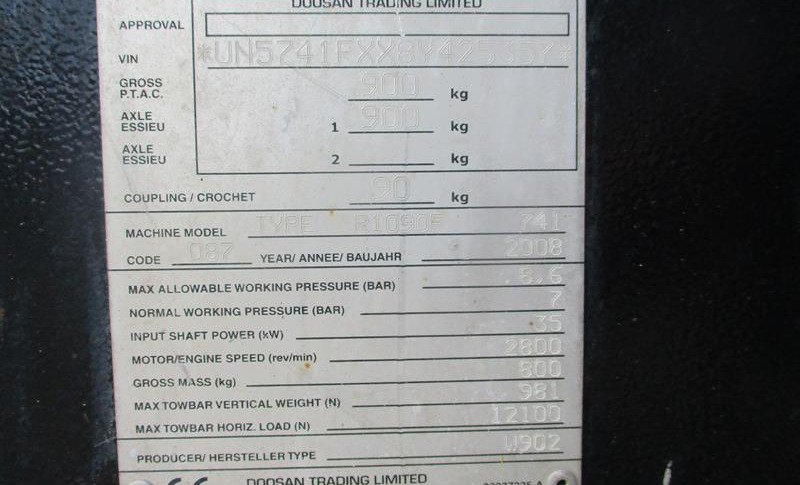 DOOSAN TRADING LIMITED
APPROVAL
VIN
GROSS P.T.A.C. 900 kg
AXLE ESSIEU 1 900 kg
AXLE ESSIEU 2 kg
COUPLING / CROCHET 90 kg
MACHINE MODEL TYPE 741
CODE 087 YEAR/ ANNEE/ BAUJAHR 2008
MAX ALLOWABLE WORKING PRESSURE (BAR) 8,6
NORMAL WORKING PRESSURE (BAR) 7
INPUT SHAFT POWER (kW) 35
MOTOR/ENGINE SPEED (rev/min) 2800
GROSS MASS (kg) 800
MAX TOWBAR VERTICAL WEIGHT (N) 981
MAX TOWBAR HORIZ. LOAD (N) 12100
PRODUCER/ HERSTELLER TYPE W902
CE DOOSAN TRADING LIMITED